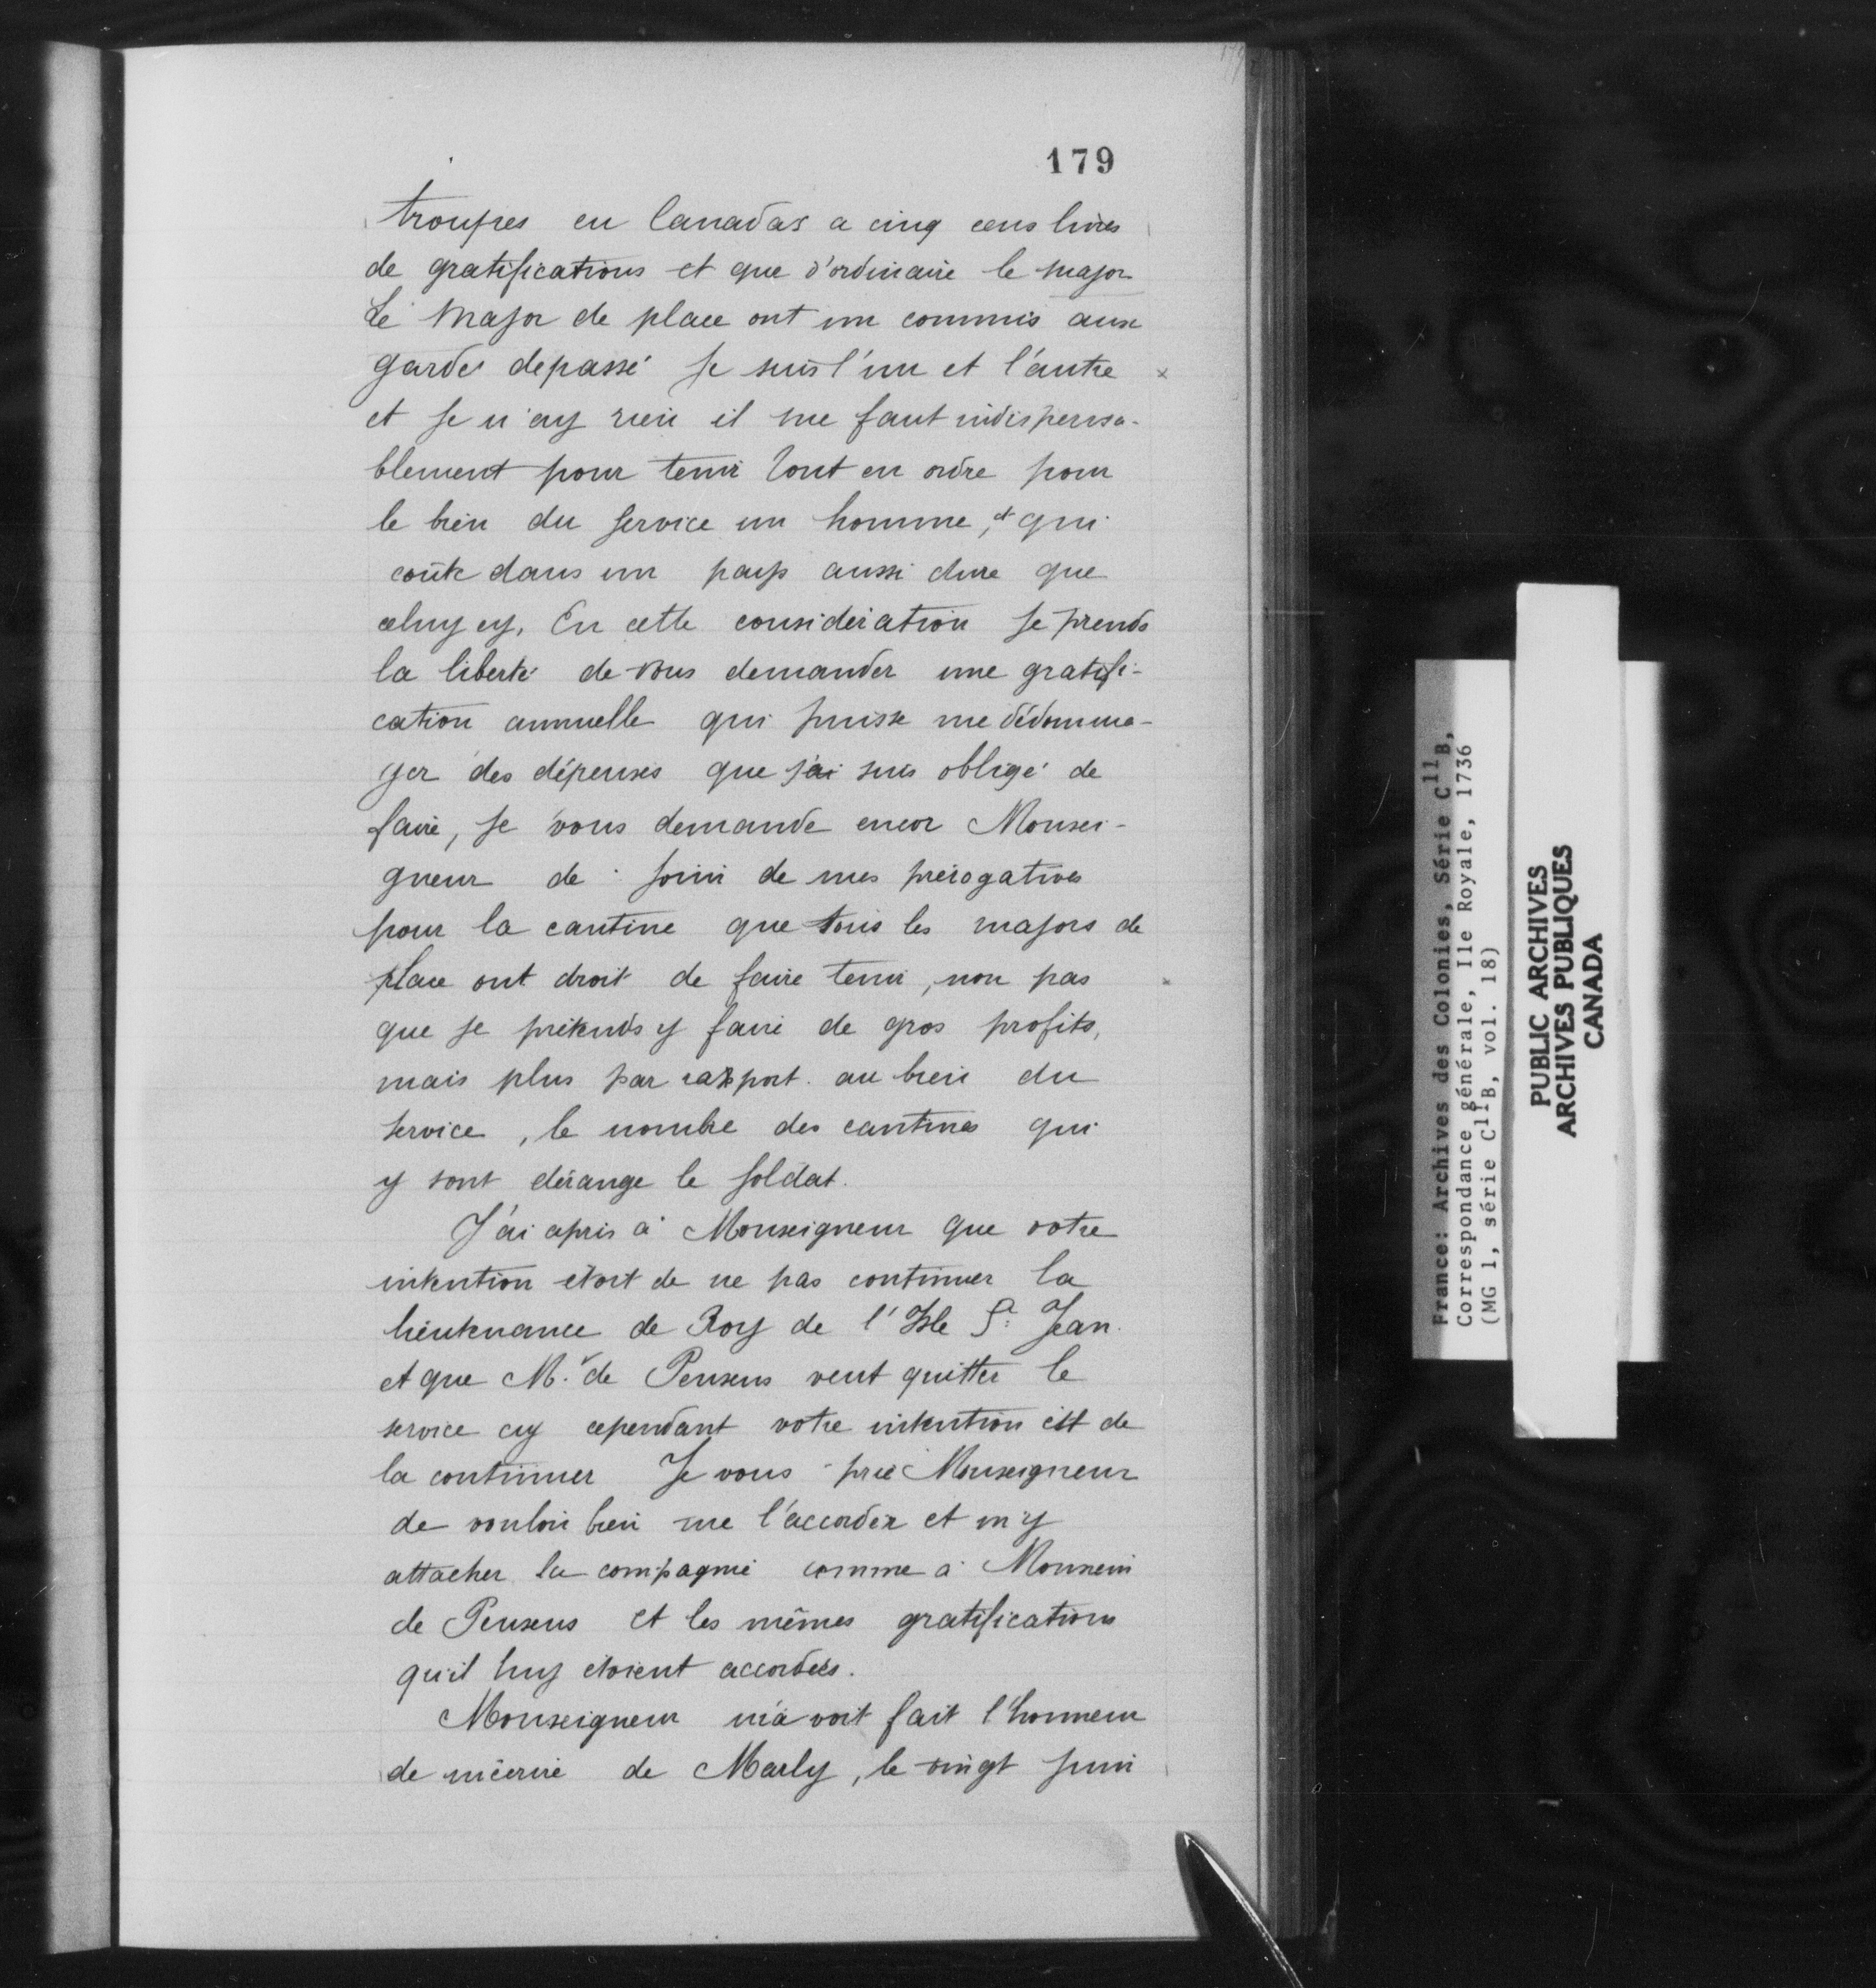 179
troupes en Canadas a cinq cens livres
de gratifications et que d'ordinaire le major
Le Major de place ont un commis aux
garde depassé Je suis l'un et l'autre x
et Je n'ay rien il me faut indispensa-
blement pour tenir tout en ordre pour
le bien du service un homme, et qui
coûte dans un pays aussi chere que
celuy cy. En cette considération Je prends
la liberté de vous demander une gratifi-
cation annuelle qui puisse me dédomma-
ger des dépenses que j'ai suis obligé de
faire, Je vous demande encor Monsei-
gneur de Jouir de mes prérogatives
pour la cantine que tous les majors de
place ont droit de faire tenir, non pas x
que Je prétends y faire de gros profits,
mais plus par rapport au bien du
service, le nombre des cantines qui
y sont dérange le soldat.
J'ai apris à Monseigneur que votre
intention étoit de ne pas continuer la
lieutenance de Roy de l'Isle St Jean.
et que Mr de Pensens veut quitter le
service cy cependant votre intention est de
la continuer Je vous prie Monseigneur
de vouloir bien me l'accorder et m'y
attacher la compagnie comme à Monsieur
de Pensens et les mêmes gratifications
qu'il luy étoient accordées.
Monseigneur m'avoit fait l'honneur
de m'écrire de Marly, le vingt Juin
France: Archives des Colonies, Série C11B,
Correspondance générale, Ile Royale, 1736
(MG 1, série C11B, vol. 18)
PUBLIC ARCHIVES
ARCHIVES PUBLIQUES
CANADA